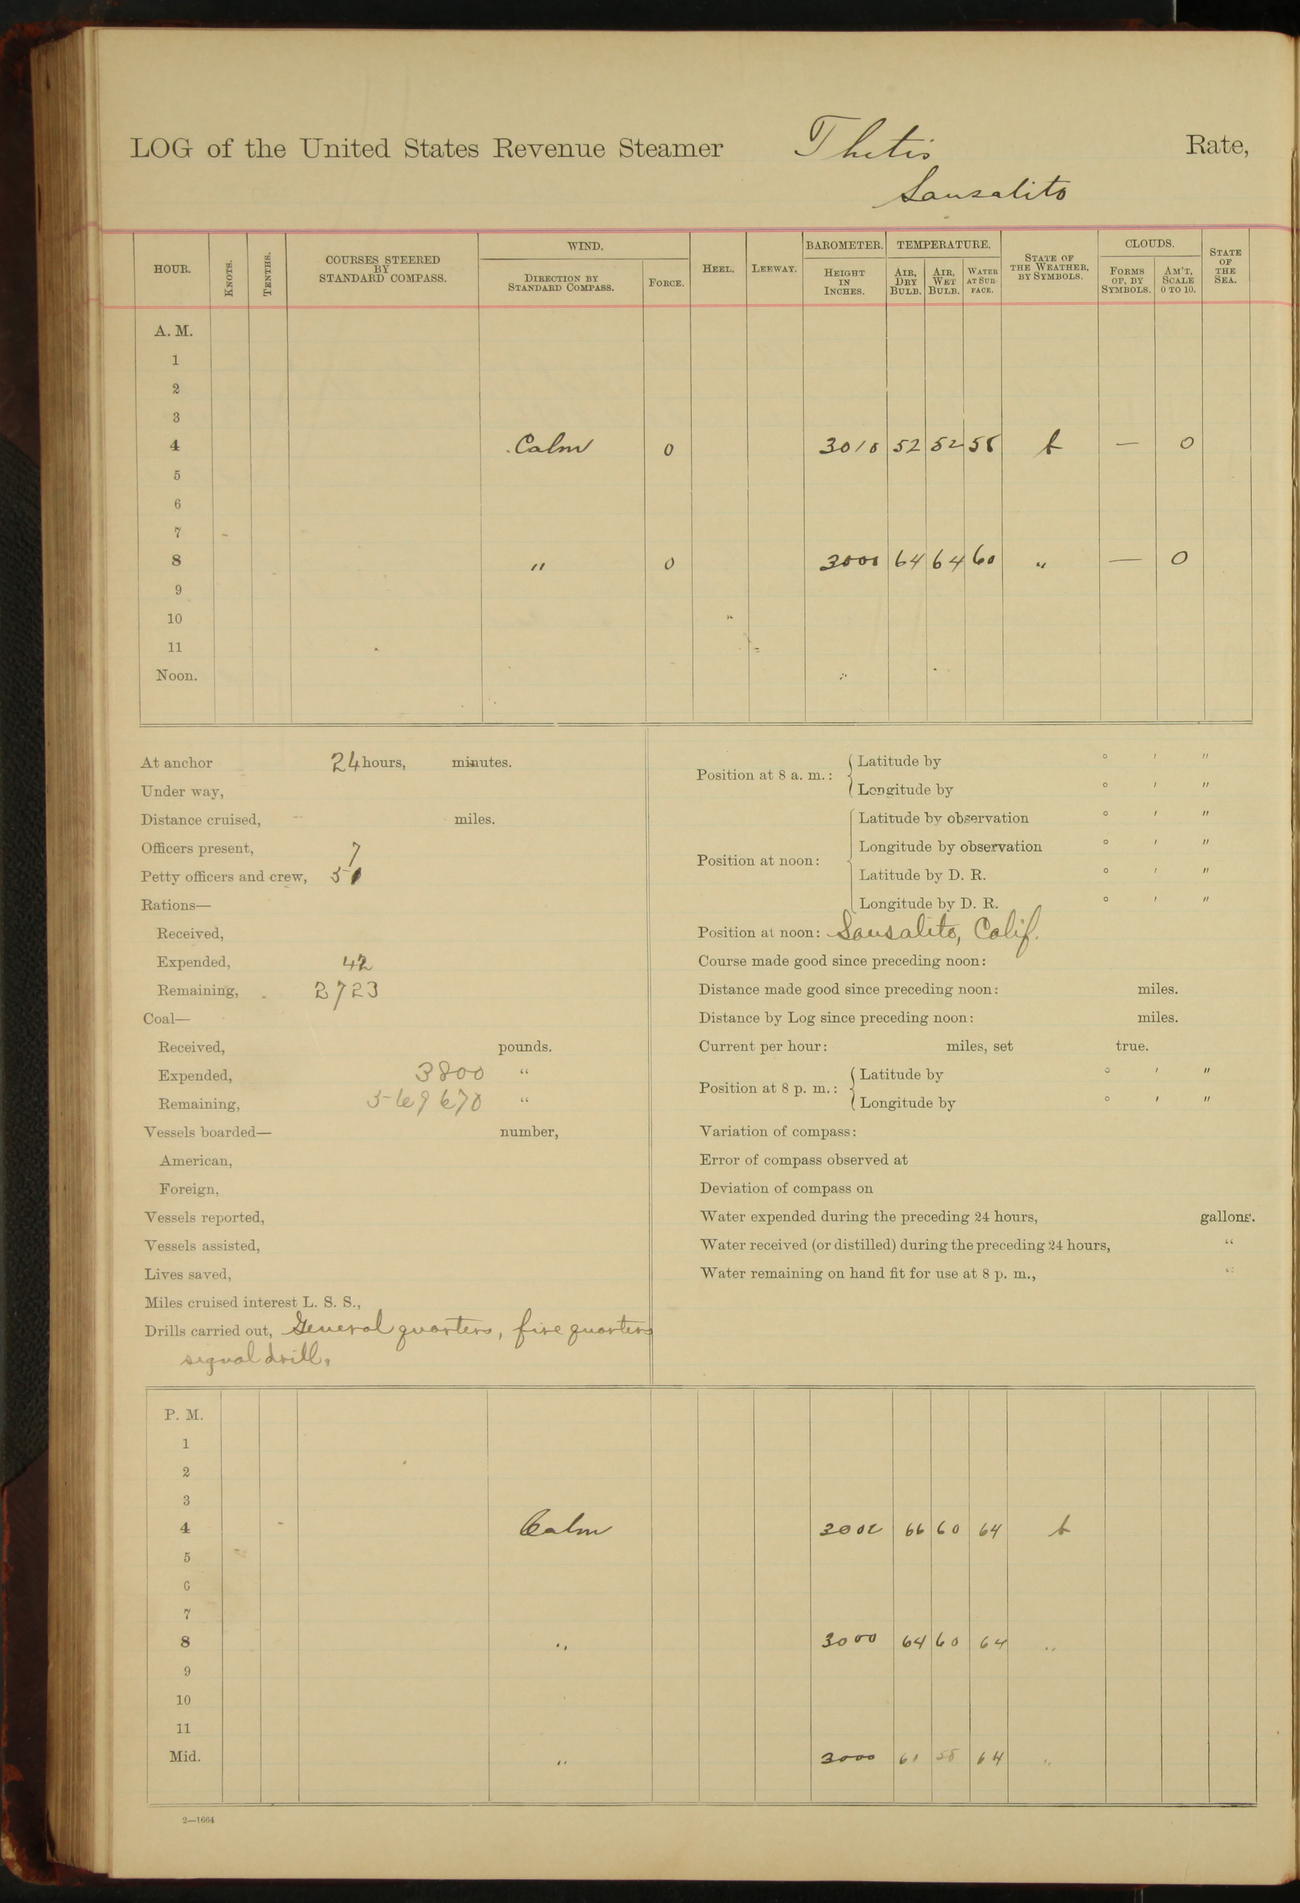 LOG of the United States Revenue Steamer Thetis Rate,
Sausalito
HOUR. KNOTS. TENTHS. COURSES STEERED BY STANDARD COMPASS. WIND. DIRECTION BY STANDARD COMPASS. FORCE. HEEL. LEEWAY. BAROMETER. HEIGHT IN INCHES. TEMPERATURE. AIR, DRY BULB. AIR, WET BULB. WATER AT SURFACE. STATE OF THE WEATHER, BY SYMBOLS. CLOUDS. FORMS OF, BY SYMBOLS. AM'T, SCALE 0 TO 10. STATE OF THE SEA.
A. M.
1
2
3
4 Calm 0 3010 52 52 58 b — 0
5
6
7
8 " 0 3000 64 64 60 " — 0
9
10
11
Noon.
At anchor 24 hours, minutes.
Under way,
Distance cruised, miles.
Officers present, 7
Petty officers and crew,
Rations—
Received,
Expended, 42
Remaining, 2723
Coal—
Received, pounds.
Expended, 3800 "
Remaining, 569670 "
Vessels boarded— number,
American,
Foreign,
Vessels reported,
Vessels assisted,
Lives saved,
Miles cruised interest L. S. S.,
Drills carried out, General quarters, fire quarters
signal drill.
Position at 8 a. m.: Latitude by ° ' "
Longitude by ° ' "
Position at noon: Latitude by observation ° ' "
Longitude by observation ° ' "
Latitude by D. R. ° ' "
Longitude by D. R. ° ' "
Position at noon: Sausalito, Calif.
Course made good since preceding noon:
Distance made good since preceding noon: miles.
Distance by Log since preceding noon: miles.
Current per hour: miles, set true.
Position at 8 p. m.: Latitude by ° ' "
Longitude by ° ' "
Variation of compass:
Error of compass observed at
Deviation of compass on
Water expended during the preceding 24 hours, gallons.
Water received (or distilled) during the preceding 24 hours, "
Water remaining on hand fit for use at 8 p. m., "
P. M.
1
2
3
4 Calm 66 60 64 b
5
6
7
8 " 3000 64 60 64 "
9
10
11
Mid. " 3000 61 58 64 "
2—1664